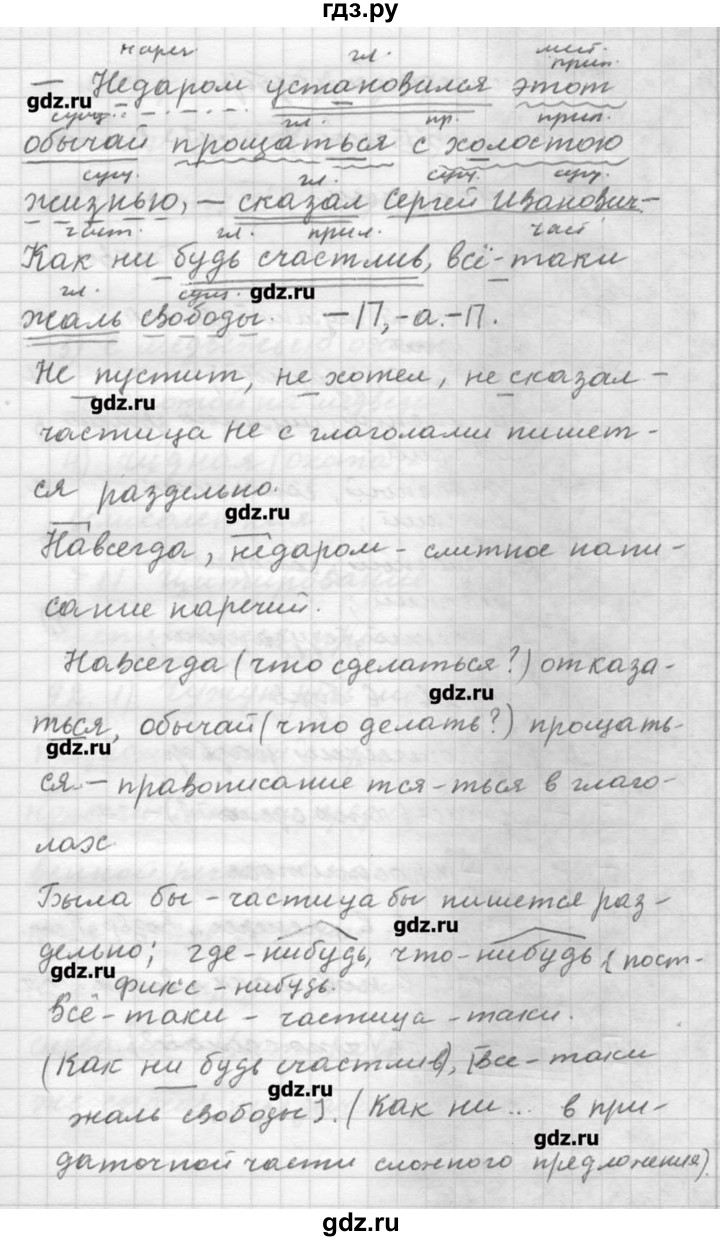 гдз.ру
нареч. гл. мест. прил.
— Недаром установился этот
gdz.ru
сущ. гл. пр. прил.
обычай прощаться с холостою
сущ. гл. сущ. сущ.
жизнью, — сказал Сергей Иванович. —
част. гл. прил. част
Как ни будь счастлив, всё-таки
гл. сущ. gdz.ru
жаль свободы. — П, - а. - П.
Не пустит, не хотел, не сказал –
gdz.ru
частица не с глаголами пишет-
ся раздельно.
gdz.ru
Навсегда, недаром – слитное напи-
сание наречий.
Навсегда (что сделаться?) отказа-
gdz.ru
ться, обычай (что делать?) прощать-
gdz.ru
ся – правописание тся-ться в глаго-
лах
Была бы – частица бы пишется раз-
gdz.ru
дельно; где-нибудь, что-нибудь (пост-
gdz.ru
фикс – нибудь.
Всё-таки – частица -таки.
(Как ни будь счастлив), [все-таки
gdz.ru
жаль свободы]. (Как ни... в при-
gdz.ru
даточной части сложного предложения).
gdz.ru